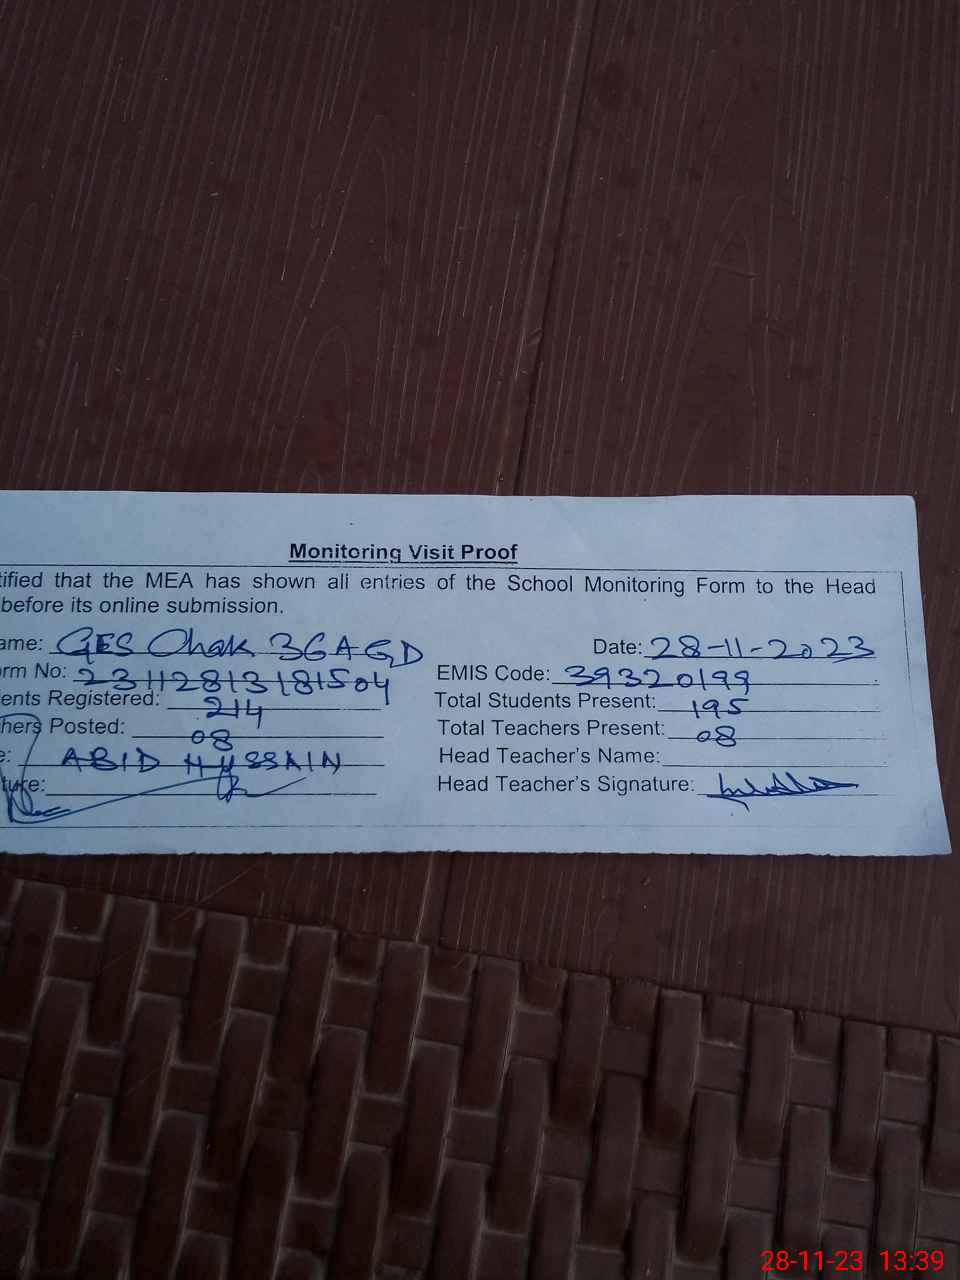 Monitoring Visit Proof
tified that the MEA has shown all entries of the School Monitoring Form to the Head
before its online submission.
ame: GES Chak 36A GD Date: 28-11-2023
rm No: 23112813181504 EMIS Code: 39320199
ents Registered: 214 Total Students Present: 195
hers Posted: 08 Total Teachers Present: 08
e: ABID HUSSAIN Head Teacher's Name:
ture: Head Teacher's Signature:
28-11-23 13:39